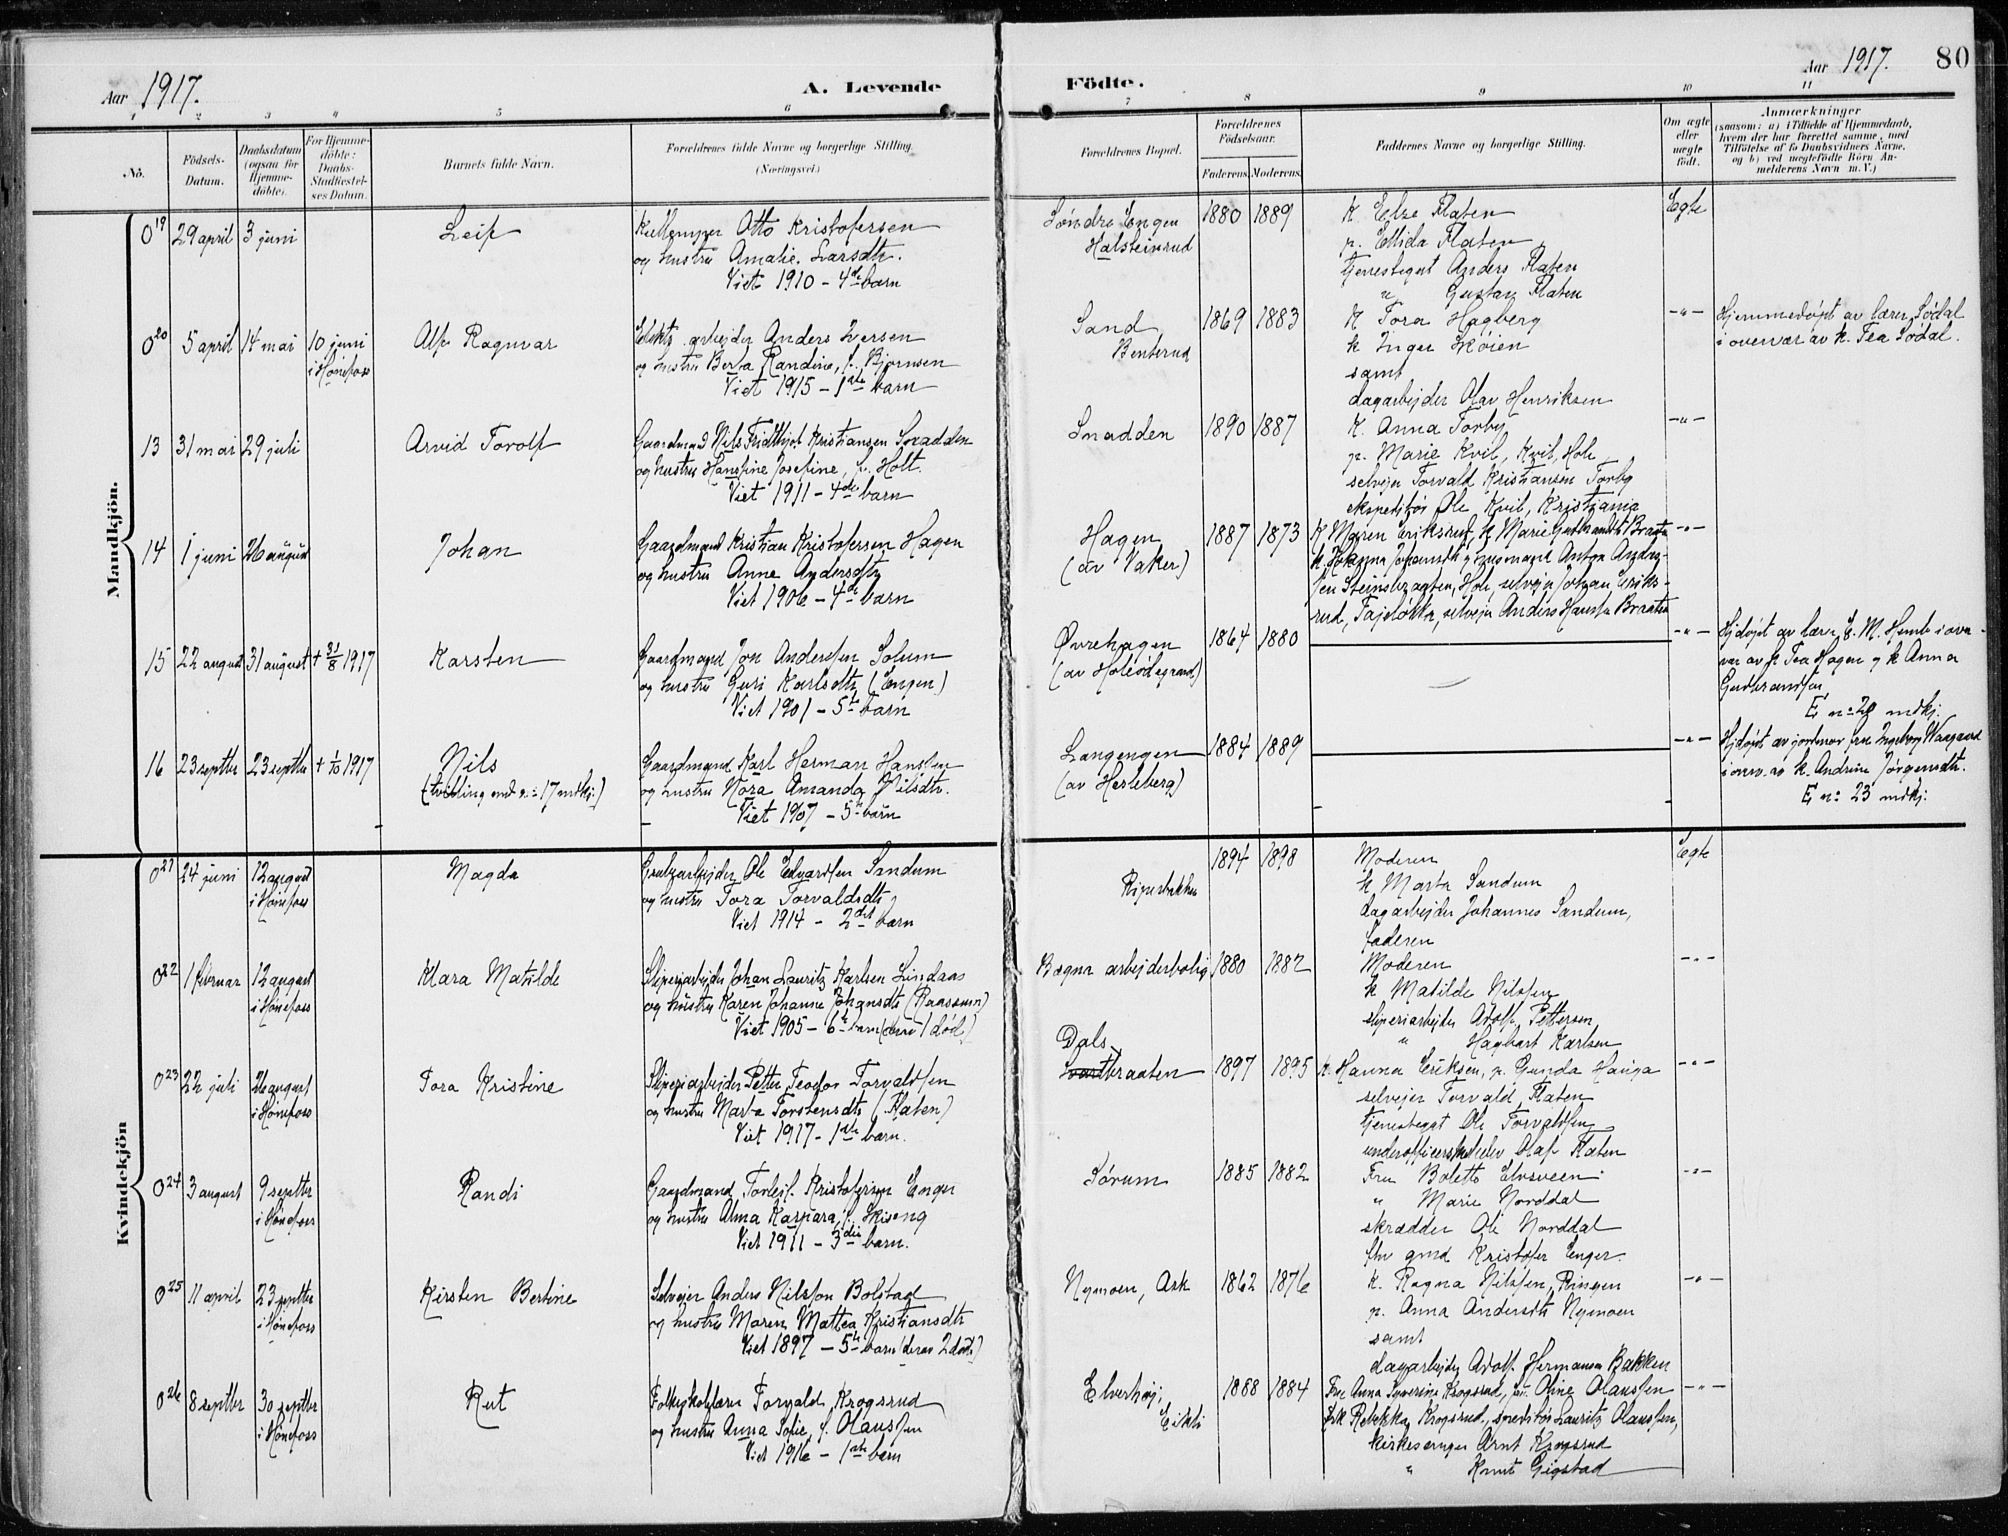 Aar 1917.
A. Levende
Födte.
Aar 1917.
80
1 2 3 4 5 6
7 8 9 10 11
No.
Födsels-Datum.
Daabsdatum (ogsaa for Hjemme-döbte).
For Hjemme-döbte: Daabs-Stadfæstel-ses Datum.
Barnets fulde Navn.
Forældrenes fulde Navne og borgerlige Stilling. (Næringsvei.)
Forældrenes Bopæl.
Forældrenes Födselsaar.
Faderens. Moderens.
Faddernes Navne og borgerlige Stilling.
Om ægte eller uægte födt.
Anmærkninger
(saasom: a) i Tilfælde af Hjemmedaab, hvem der har forrettet samme, med Tilföielse af to Daabsvidners Navne, og b) ved uægtefödte Börn An-melderens Navn m. V.)
Mandkjön.
0 19 29 april 3 juni Leif
Otto Kristofersen
og hustru Amalie Larsdtr.
Viet 1910 - 4de barn
Søndre Engen
Halsteinrud
1880 1889
K. Else Flaten
p. Ellida Flaten
tjenestegut Anders Flaten
" Gustav Flaten
Egte
0 20 5 april 14 mai 10 juni i Hönefoss Alf Ragnvar
Elektr. arbejder Anders Iversen
og hustru Berta Randine, f. Bjørnsen
Viet 1915 - 1ste barn
Sand
Benterud
1869 1883
K Tora Hagberg
k Inger Skøien
samt
dagarbejder Olav Henriksen
-"-
Hjemmedøpt av lærer Sødal
i overvær av k. Tea Sødal.
13 31 mai 29 juli Arvid Torolf
Gaardmand Nils Fridthjof Kristiansen Snadden
og hustru Hansine Josefine, f. Holt.
Viet 1911 - 4de barn
Snadden
1890 1887
K. Anna Torby
p. Marie Kvil, Kvil, Hole
selveier Torvald Kristiansen Torby
ekspeditør Ole Kvil, Kristiania
-"-
14 1 juni 26 august Johan
Gaardmand Kristian Kristofersen Hagen
og hustru Anne Andersdtr
Viet 1906 - 4de barn
Hagen
(av Vaker)
1887 1873
K Maren Eriksrud, k Marie Gulbrandsdtr Braaten
k. Johanna Johansdtr, husmand Anton Andre-
sen Steinsbraaten, Hole, selvejer Johan Eriks-
rud, selvejer Anders Hansen Braaten
-"-
15 22 august 31 august + 31/8 1917 Karsten
Gaardmand Jon Anderssen Solum
og hustru Guri Karlsdtr (Engen)
Viet 1901 - 5te barn
Øvrehagen
(av Holeødegaard)
1864 1880
-"-
Hjdøpt av lærer E. M. Hemb i over-
vær av k Tea Hagen og k Anna
Gudbrandsen
E no 20 mdkj.
16 23 septbr 23 septbr + 1/10 1917 Nils
(tvilling med no 17 mdkj.)
Gaardmand Karl Herman Hansen
og hustru Nora Amanda Nilsdtr.
Viet 1907 - 5te barn
Langengen
(av Herleberg)
1884 1889
-"-
Hjdøpt av jordmor fru Ingeborg Waagaard
i overv. av k. Andrine Jørgensdtr.
E no 23 mdkj.
Kvindekjön
0 21 24 juni 12 august i Hönefoss Magda
Grubearbejder Ole Edvardsen Sandum
og hustru Tora Torvaldsdtr
Viet 1914 - 2det barn
Riperbakken
1894 1898
Moderen
k Marta Sandum
dagarbejder Johannes Sandum,
faderen
Egte
0 22 1 februar 12 august i Hönefoss Klara Matilde
Sliperiarbejder Johan Lauritz Karlsen Lindaas
og hustru Karen Johanne Johansdtr (Raassum)
Viet 1905 - 6te barn (derav 1 død)
Bægna arbejderbolig
1880 1882
Moderen
k Matilde Nilsen
sliperiarbejder Adolf Pettersen
" Hagbart Karlsen
-"-
0 23 22 juli 26 august i Hönefoss Tora Kristine
Sliperiarbejder Petter Teodor Torvaldsen
og hustru Marta Torstensdtr (Flaten)
Viet 1917 - 1ste barn.
Dals
braaten
1897 1895
k. Hanna Eriksen, p. Gunda Hauga
selvejer Torvald Flaten
tjenestegut Ole Torvaldsen
underofficerselev Olaf Flaten
-"-
0 24 3 august 9 septbr i Hönefoss Randi
Gaardmand Torleif Kristofersen Enger
og hustru Alma Kaspara, f. Skiseng
Viet 1911 - 3die barn.
Sørum
1885 1882
Fru Bolette Elvsveen
" Marie Norddal
skrædder Ole Norddal
fhv gmd Kristofer Enger.
-"-
0 25 11 april 23 septbr i Hönefoss Kirsten Bertine
Selveier Anders Nilsson Bolstad
og hustru Maren Mattea Kristiansdtr
Viet 1897 - 5te barn (derav 2 døde)
Nymoen, Ask
1862 1876
K. Ragna Nilsen, Ringen
p. Anna Andersdtr Nymoen
samt
dagarbejder Adolf Hermansen Bakken
-"-
0 26 8 septbr 30 septbr i Hönefoss Rut
Folkeskolelærer Torvald Krogsrud
og hustru Anna Sofie, f. Olaussen
Viet 1916 - 1ste barn
Elverhøj,
Eikli
1888 1884
Fru Anna Severine Krogsrud, fru Oline Olaussen
frk Rebekka Krogsrud, speditør Lauritz Olaussen,
kirkesanger Arnt Krogsrud
" Knut Gigstad
-"-